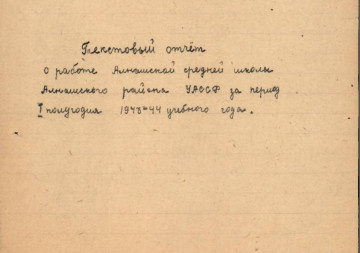 Текстовый отчёт
о работе Алнашской средней школы
Алнашского района УАССР за период
I полугодия 1943-44 учебного года.